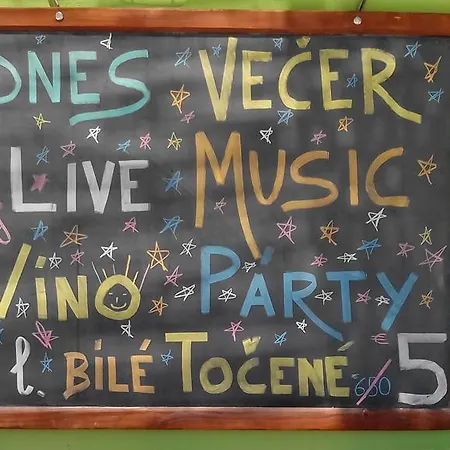 DNES VEČER
LIVE MUSIC
VÍNO PÁRTY
l. BÍLÉ TOČENÉ 650 5